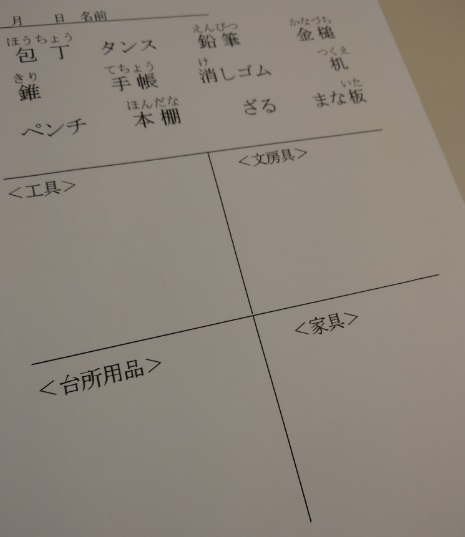 月 日 名前
ほうちょう えんぴつ かなづち
包丁 タンス 鉛筆 金槌
きり てちょう け つくえ
錐 手帳 消しゴム 机
ほんだな いた
ペンチ 本棚 ざる まな板
＜工具＞ ＜文房具＞
＜台所用品＞ ＜家具＞